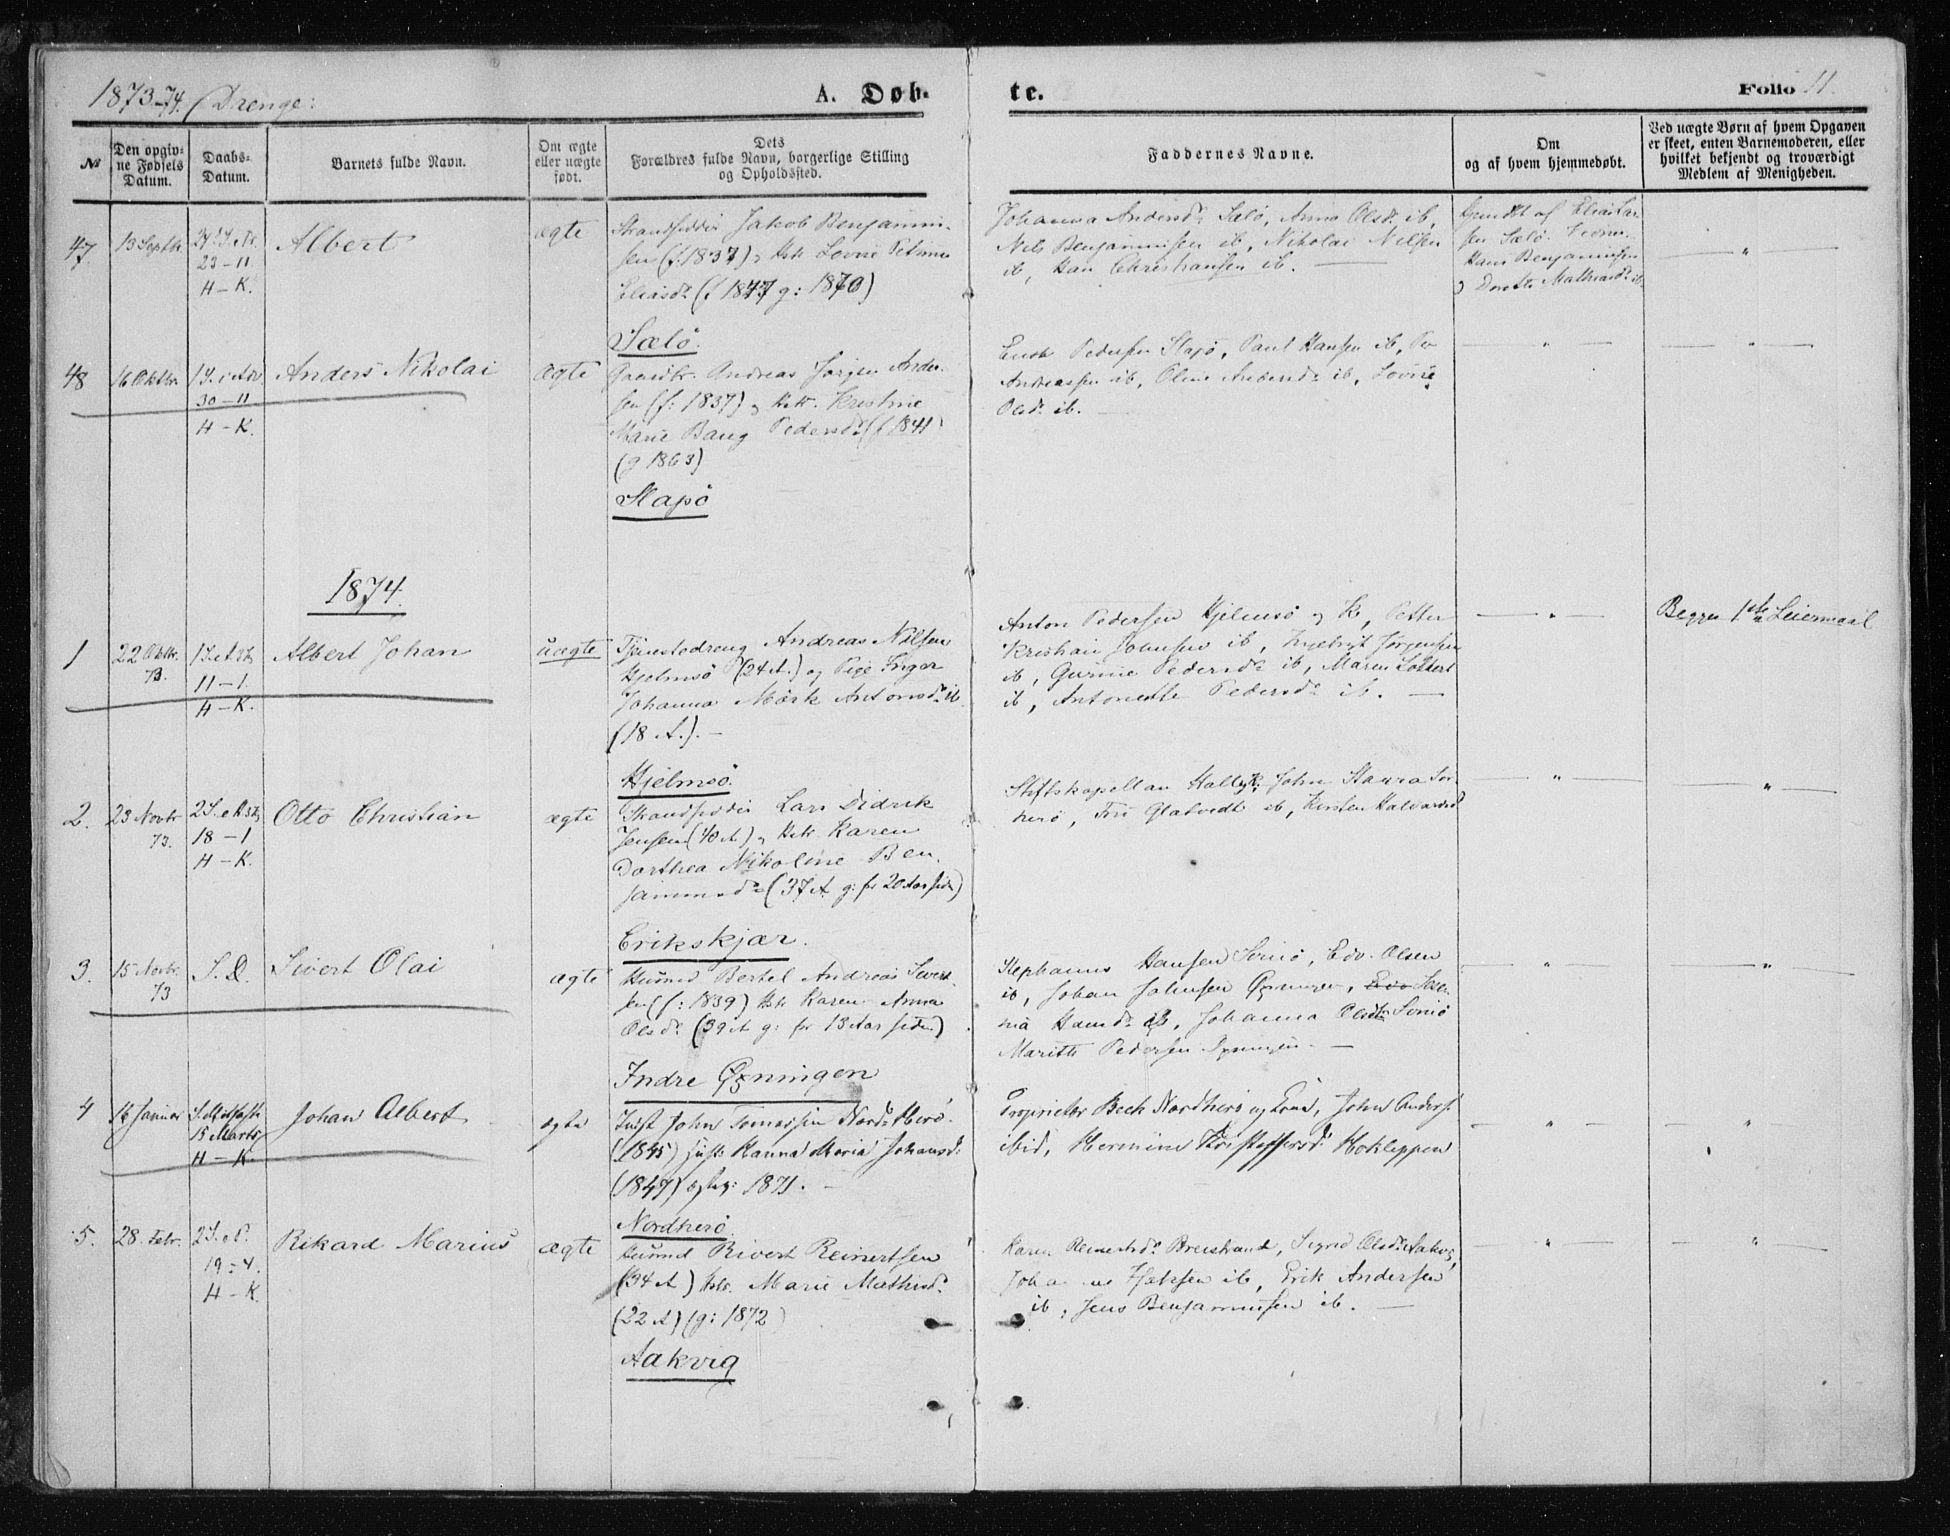 1873-74. Drenge:
A. Døb-
te.
Folio 11.
№
Den opgiv-
ne Fødsels
Datum.
Daabs-
Datum.
Barnets fulde Navn.
Om ægte
eller uægte
født.
Dets
Forældres fulde Navn, borgerlige Stilling
og Opholdssted.
Faddernes Navne.
Om
og af hvem hjemmedøbt.
Ved uægte Børn af hvem Opgaven
er skeet, enten Barnemoderen, eller
hvilket bekjendt og troværdigt
Medlem af Menigheden.
47
13 Septbr
23-11
H-K.
Albert
ægte
Strandsidder Jakob Benjamin-
sen (f. 1837) og Hstr Lovise Petrine
Eliasdr (f 1847 g: 1870)
Sælø.
Johanna Andersdr Sælø, Anna Olsdr ib,
Nils Benjaminsen ib, Nikolai Nilsen
ib, Hans Christiansen ib. —
Hjemdt af Elias Lar-
sen Sælø.
Hans Benjaminsen
og Dorothe Mathiasdr ib.
— " —
48
16 Oktbr.
1 S. i Adv
30-11
H-K.
Anders Nikolai
ægte
Gaardbr. Andreas Jørgen Ander-
sen (f: 1837) og Hstr. Kristine
Marie Baug Pedersdr (f 1841)
(g 1863)
Slapø
Pedersen Slapø, Paul Hansen ib,
Andreassen ib, Oline Andersdr ib, Lovise
Olsdr ib. —
— " —
— " —
1874.
1
22 Oktbr.
73.
11-1
H-K.
Albert Johan
uægte
Tjenestedreng Andreas Nilsen
Hjelmsø (24 A.) og Pige Inger
Johanna Mørk Antonsdr ib
(18 A.). —
Hjelmsø.
Anton Pedersen Hjelmsø og K, Petter
Kristian Johnsen ib, Ingebrigt Jørgensen
ib, Gurine Pedersdr ib, Maren
ib, Antonette Pedersdr ib. —
— " —
Begges 1ste Leiermaal
2.
23 Novbr
73.
18-1
H-K.
Otto Christian
ægte
Strandsidder Lars Didrik
Jensen (40 A) og Hstr Karen
Dorthea Nikoline Ben-
jaminsdr (37 A g: for 20 Aar siden)
Erikskjær.
Stiftskapellan John
herø, Fru Glatvedt ib, Kirsten Halvorsd
— " —
— " —
3.
15 Novbr.
73
S. D.
Sivert Olai
ægte
Husmd Bertel Andreas Sivert-
sen (f: 1839) Hstr Karen Anna
Olsdr (39 A g: for 13 Aar siden)
Indre Øxningen
Stephanus Hansen Serisø, Edv. Olsen
ib, Johan Johnsen Øxningen,
Hansdr ib, Johanna Olsdtr
Marith Pedersen Øxningen. —
— " —
— " —
4
16 Januar
15 Marts
H-K.
Johan Albert
ægte
Indst John Tomassen Nord-Herø.
(1845) Hanna Maria Johansd:
(1847) 1871. —
Nordherø.
Proprietær Bech Nordherø og Frue, John Anders.
ibid, Hermine Kristoffersd: Hokleppen
— " —
— " —
5.
28. Febr.
2 S. e P.
19-4.
H-K.
Rikard Marius
ægte
Husmd Sivert Reinertsen
(34 A) Hstr. Marie Mathisdr
(22 A) (g: 1872)
Aakvig
Karen Breistrand, Sigrid Olsdr Aakvig,
ib, Erik Andersen
ib, Jens Benjaminsen ib. —
— " —
— " —